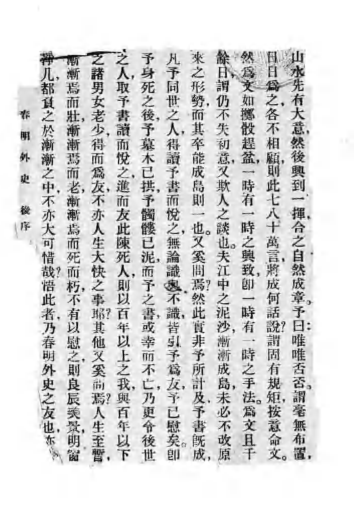 山水先有大意然後興到一揮合之自然成章予曰唯唯否否謂毫無布置,
日日爲之各不相顧則此七八十萬言將成何話說謂固有規矩按意命文。
然爲文如擲骰趕盆一時有一時之興致卽一時有一時之手法。爲文且千
餘日謂仍不失初意又欺人之談也。夫江中之泥沙漸漸成島未必不改原
來之形勢而其卒能成島則一也。又奚問焉?然此實非予所計及予書旣成,
凡予同世之人得讀予書而悅之無論識與不識皆引予爲友予已慰矣。卽
予身死之後予墓木已拱予髑髏已泥而予之書或幸而不亡乃更令後世
之人取予書讀而悅之進而友此陳死人則以百年以上之我與百年以下
之諸男女老少得而爲友不亦人生大快之事耶?其他又奚問焉?人生至暫,
漸漸焉而壯漸漸焉而老漸漸焉而死而朽不有以慰之則良辰美景明窗
淨几都負之於漸漸之中不亦大可惜哉?悟此者乃春明外史之友也亦
春明外史 後序